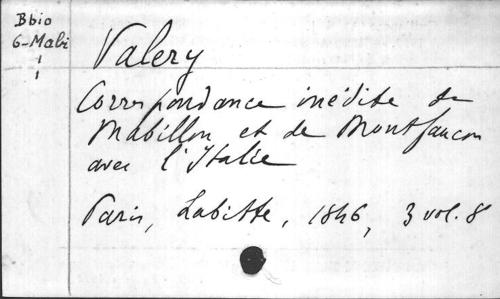 Bbio
6-Mabi
Valery
Correspondance inédite de
Mabillon et de Montfaucon
avec l'Italie
Paris, Labitte, 1846, 3 vol. 8